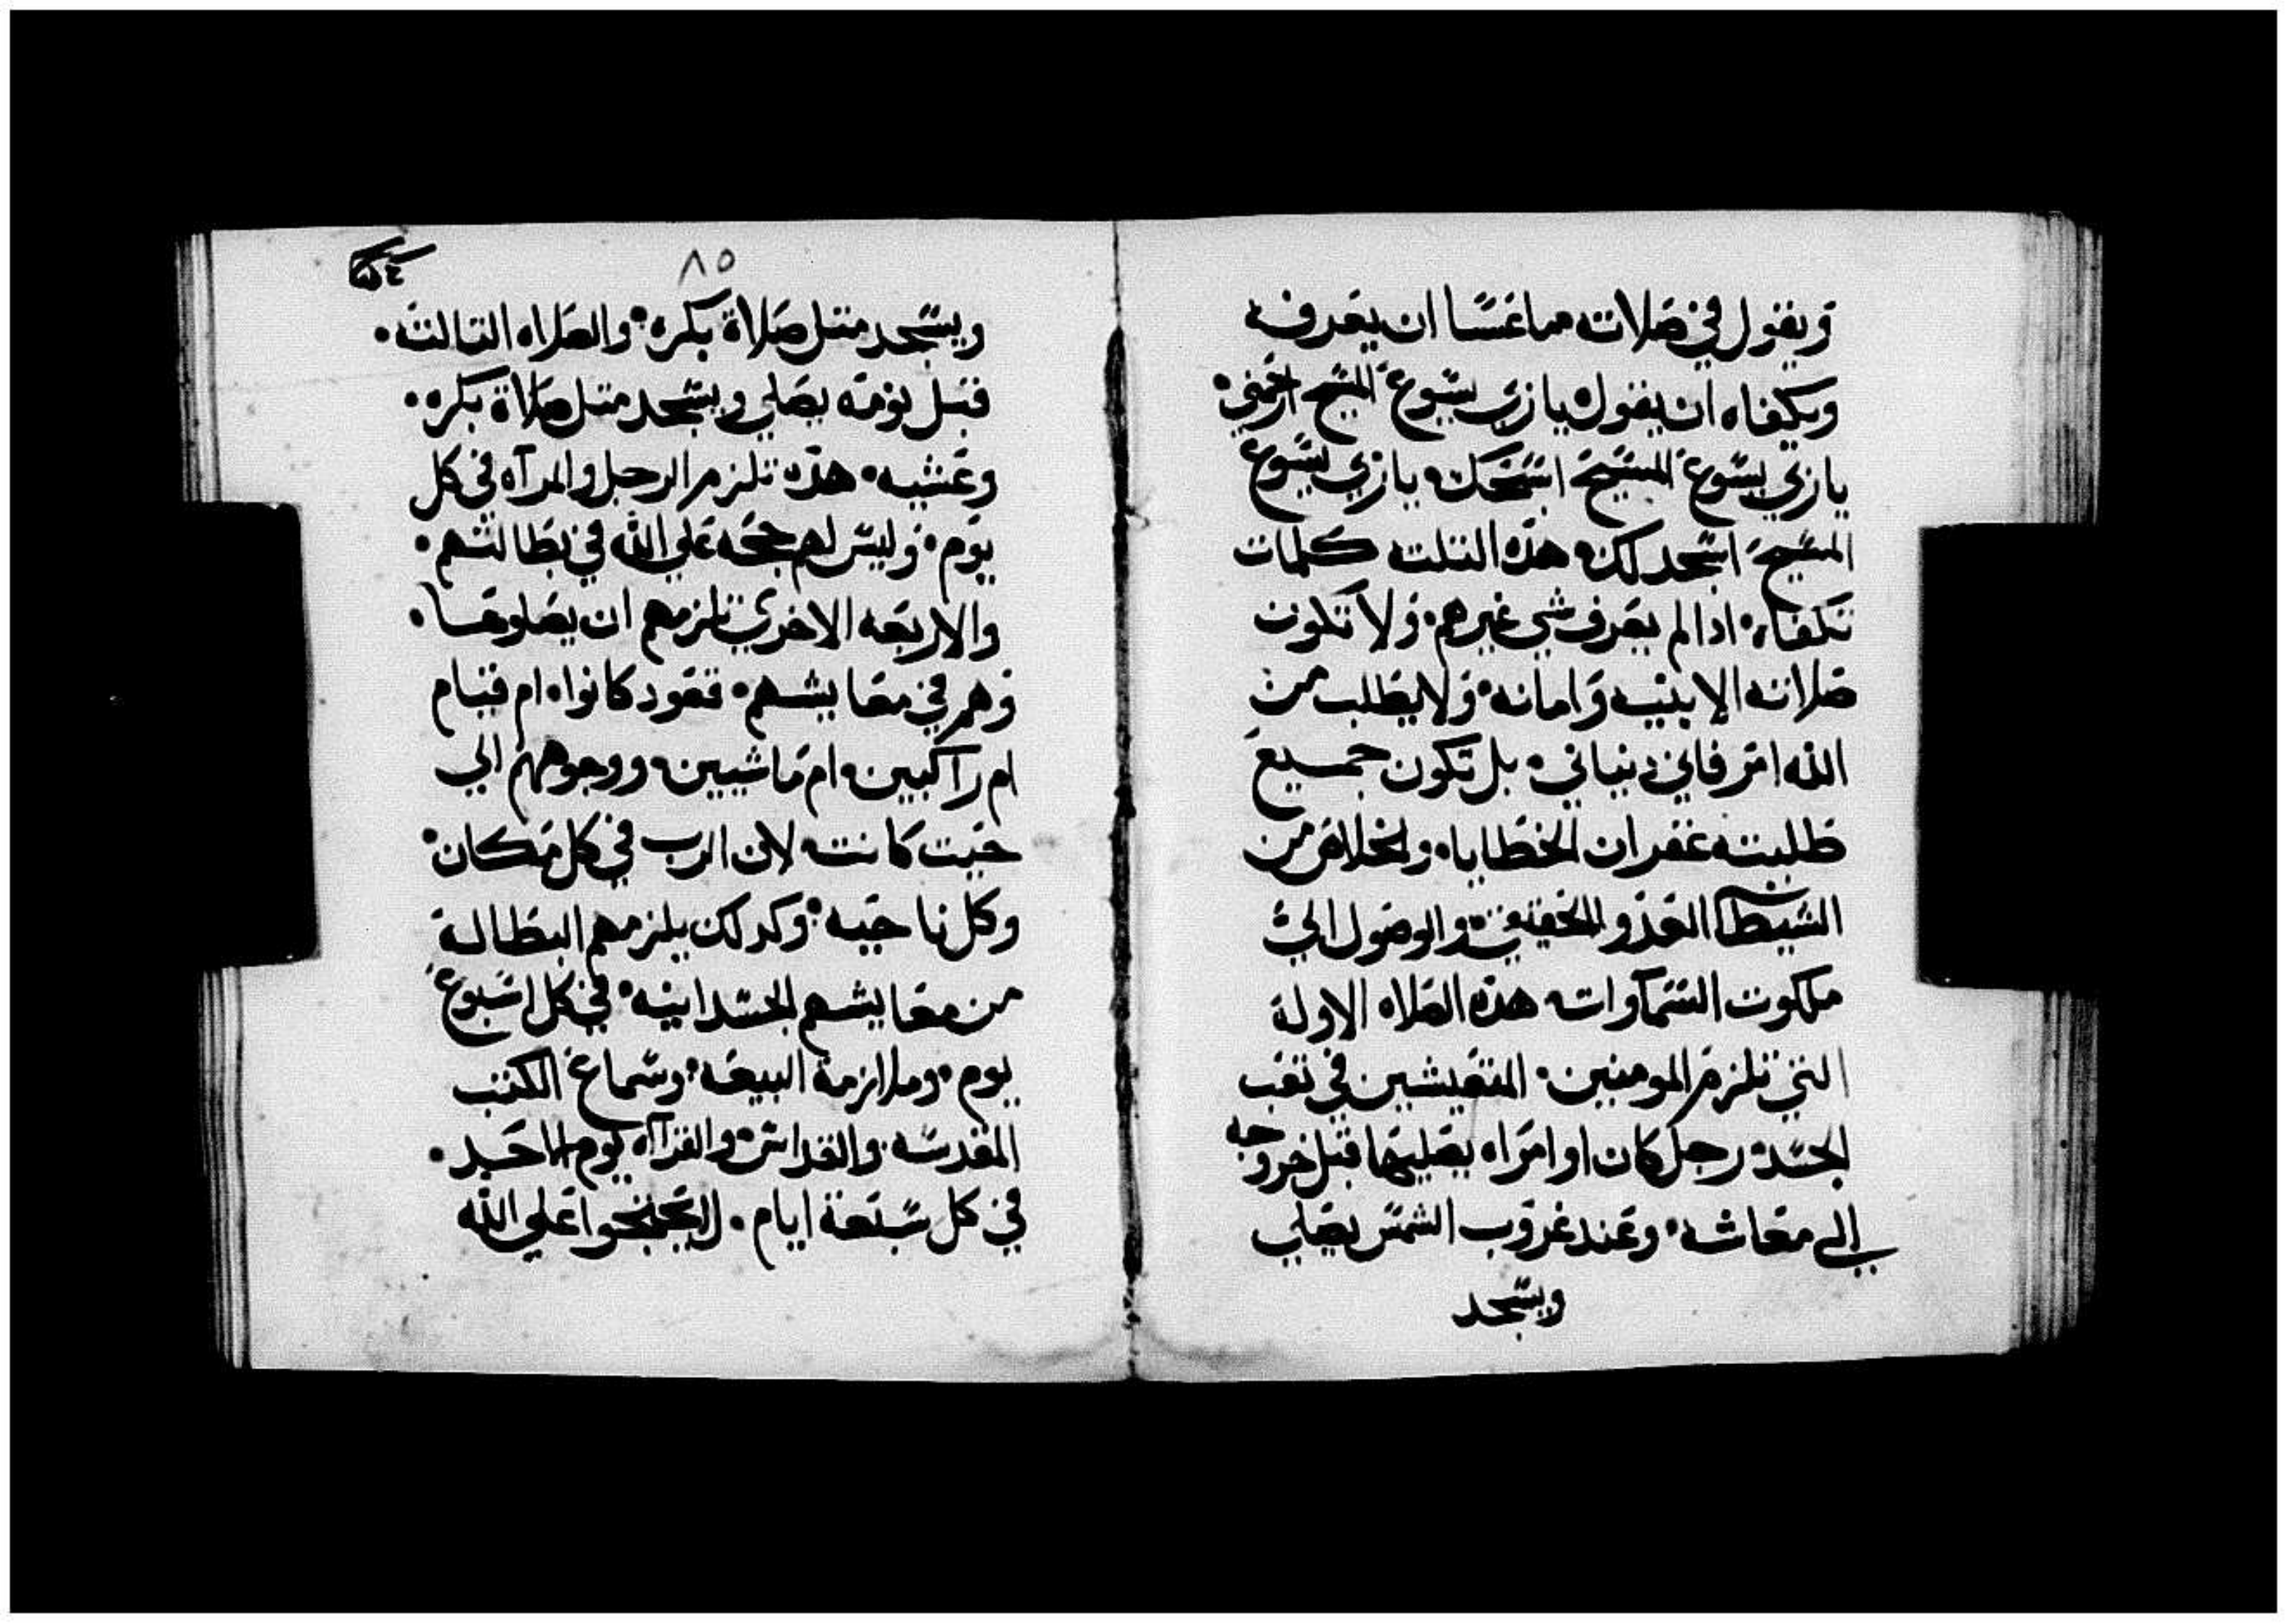 ويقول في صلاته مما عسا ان يعرفه
ويكفاه ان يقول يا ربي يسوع المسيح ارحمني.
يا ربي يسوع المسيح اسبحك. يا ربي يسوع
المسيح اسجد لك. هذه التلته كلمات
تكفاه. ادا لم يعرف شي غيرهم. ولا تكون
صلاته الا بنيه وامانه. ولا يطلب من
الله امر فاني دنياني. بل تكون جميع
طلبته غفران الخطايا. والخلاص من
الشيطان العدو الخفي. والوصول الي
ملكوت السماوات. هده الصلاه الاولة
التي تلزم المومنين. المتعيشين في تعب
الجسد. رجل كان او امراه يصليها قبل خروجه
الي معاشه. وعند غروب الشمس يصلي
ويسجد
٨٥
ويسجد متل صلاة بكره. والصلاه التالته.
قبل نومه يصلي ويسجد متل صلاة بكره.
وعشيه. هده تلزم الرجل والمرآه في كل
يوم. وليس لهم حجه علي الله في بطالتهم.
والاربعه الاخري تلزمهم ان يصلوها.
وهم في معايشهم. قعود كانوا. ام قيام
ام راكبين. ام ماشيين. ووجوههم الي
حيت كانت. لان الرب في كل مكان.
وكل ناحيه. وكدلك يلزمهم البطالة
من معايشهم الجسدانيه. في كل اسبوع
يوم. وملازمة البيعه. وسماع الكتب
المقدسه. والقداس. والقرآه يوم الاحد.
في كل سبعة ايام. لا يحتجوا علي الله